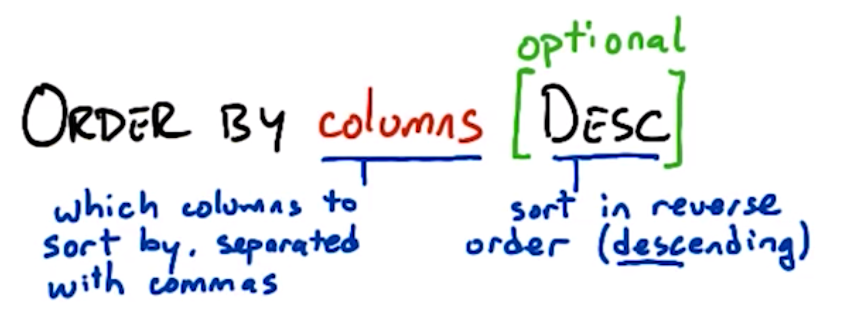 optional
ORDER BY columns [DESC]
which columns to
sort by, separated
with commas
sort in reverse
order (descending)